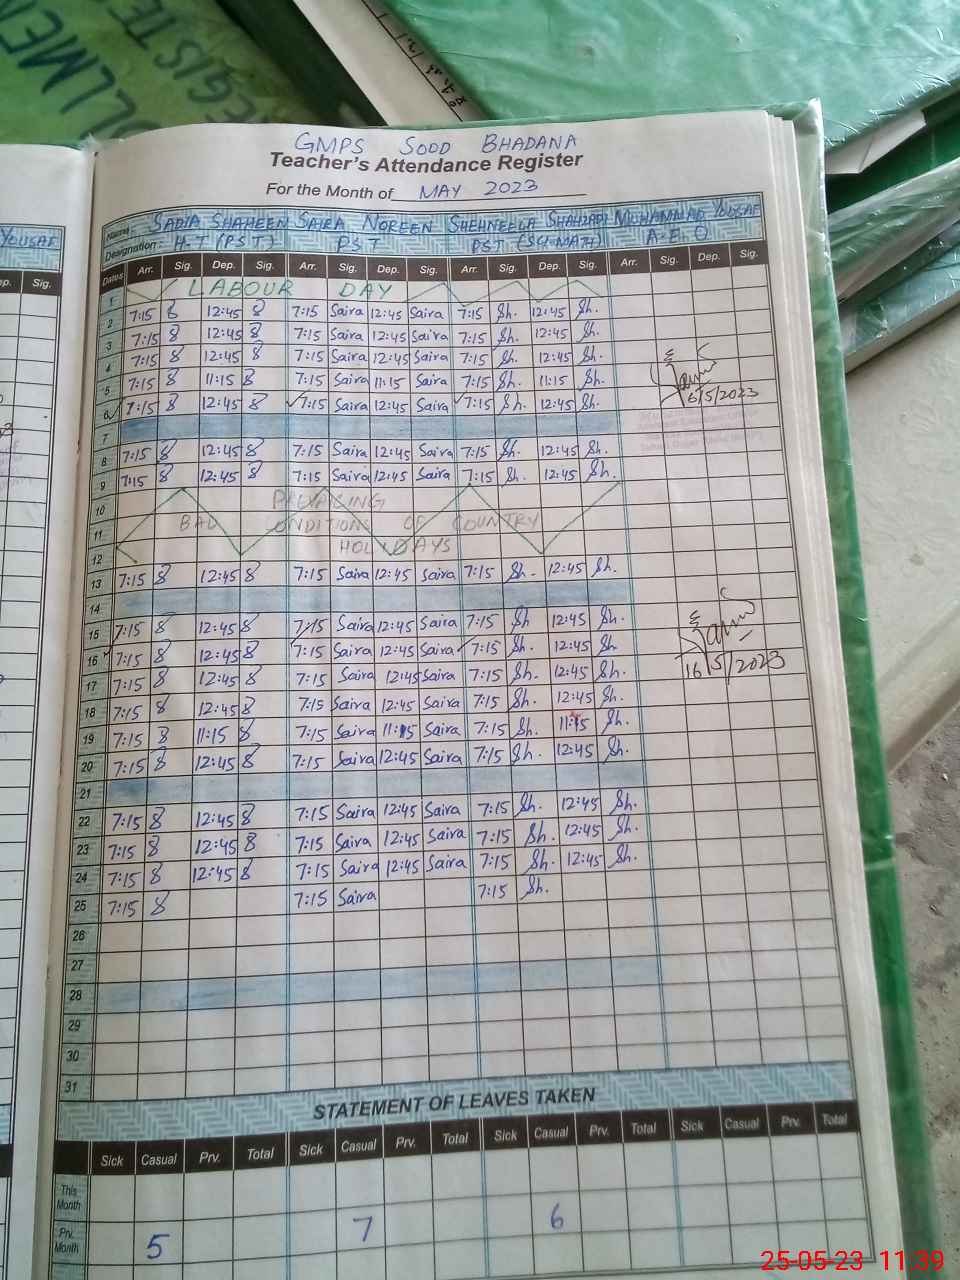 OLLMEN
REGISTE
YOUSAF
ep. Sig.
GMPS SODD BHADANA
Teacher's Attendance Register
For the Month of MAY 2023
Name: SADIA SHAHEEN SAIRA NOREEN SHEHNEELA SHAHZADI MUHAMMAD YOUSAF
Designation: H-T (PST) PST PST (SCI-MATH) A-E-O
Dates Arr. Sig. Dep. Sig. Arr. Sig. Dep. Sig. Arr. Sig. Dep. Sig. Arr. Sig. Dep. Sig.
1 LABOUR DAY
2 7:15 8 12:45 8 7:15 Saira 12:45 Saira 7:15 Sh. 12:45 Sh.
3 7:15 8 12:45 8 7:15 Saira 12:45 Saira 7:15 Sh. 12:45 Sh.
4 7:15 8 12:45 8 7:15 Saira 12:45 Saira 7:15 Sh. 12:45 Sh.
5 7:15 8 11:15 8 7:15 Saira 11:15 Saira 7:15 Sh. 11:15 Sh.
6 7:15 8 12:45 8 7:15 Saira 12:45 Saira 7:15 Sh. 12:45 Sh. 6/5/2023
7
8 7:15 8 12:45 8 7:15 Saira 12:45 Saira 7:15 Sh. 12:45 Sh.
9 7:15 8 12:45 8 7:15 Saira 12:45 Saira 7:15 Sh. 12:45 Sh.
10 PREVAILING
11 BAD CONDITIONS OF COUNTRY
12 HOLIDAYS
13 7:15 8 12:45 8 7:15 Saira 12:45 Saira 7:15 Sh. 12:45 Sh.
14
15 7:15 8 12:45 8 7:15 Saira 12:45 Saira 7:15 Sh 12:45 Sh.
16 7:15 8 12:45 8 7:15 Saira 12:45 Saira 7:15 Sh. 12:45 Sh. 16/5/2023
17 7:15 8 12:45 8 7:15 Saira 12:45 Saira 7:15 Sh. 12:45 Sh.
18 7:15 8 12:45 8 7:15 Saira 12:45 Saira 7:15 Sh. 12:45 Sh.
19 7:15 8 11:15 8 7:15 Saira 11:15 Saira 7:15 Sh. 11:15 Sh.
20 7:15 8 12:45 8 7:15 Saira 12:45 Saira 7:15 Sh. 12:45 Sh.
21
22 7:15 8 12:45 8 7:15 Saira 12:45 Saira 7:15 Sh. 12:45 Sh.
23 7:15 8 12:45 8 7:15 Saira 12:45 Saira 7:15 Sh. 12:45 Sh.
24 7:15 8 12:45 8 7:15 Saira 12:45 Saira 7:15 Sh. 12:45 Sh.
25 7:15 8 7:15 Saira 7:15 Sh.
26
27
28
29
30
31
STATEMENT OF LEAVES TAKEN
Sick Casual Prv. Total Sick Casual Prv. Total Sick Casual Prv. Total Sick Casual Prv. Total
This Month
Prv. Month 5 7 6
25-05-23 11:39